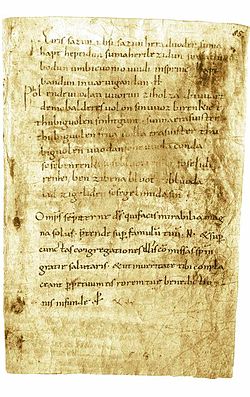 Eiris sazun idisi sazun hera duoder suma
hapt heptidun suma heri lezidun suma clu
bodun umbi cuonio uuidi insprinc hapt
bandun inuar uigandun H
Phol ende uuodan uuorun zi holza du uuart
demo balderes uolon sin uuoz birenkict
thu biguolen sinhtgunt sunna era suister
thu biguolen friia uolla era suister thu
biguolen uuodan so he uuola conda
sose benrenki sose bluotrenki sose lidi
renki ben zi bena bluot zi bluoda
lid zi geliden sose gelimida sin
Omps sempiterne ds qui facis mirabilia mag
na solus ptende sup famulu tuu N & sup
cunctas congregationes illis comissas spm
gratie salutaris & ut in ueritate tibi compla
ceant perpetuum eis rorem tue benedictio
nis infunde P